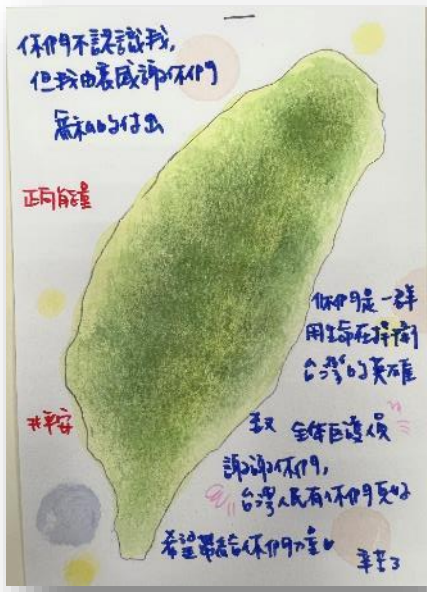 你們不認識我,
但我由衷感謝你們
無私的付出
正向能量
你們是一群
用生命在捍衛
台灣的英雄
致 全体医護人員
謝謝你們,
台灣人民有你們真好
希望帶給你們力量
辛苦了
平安